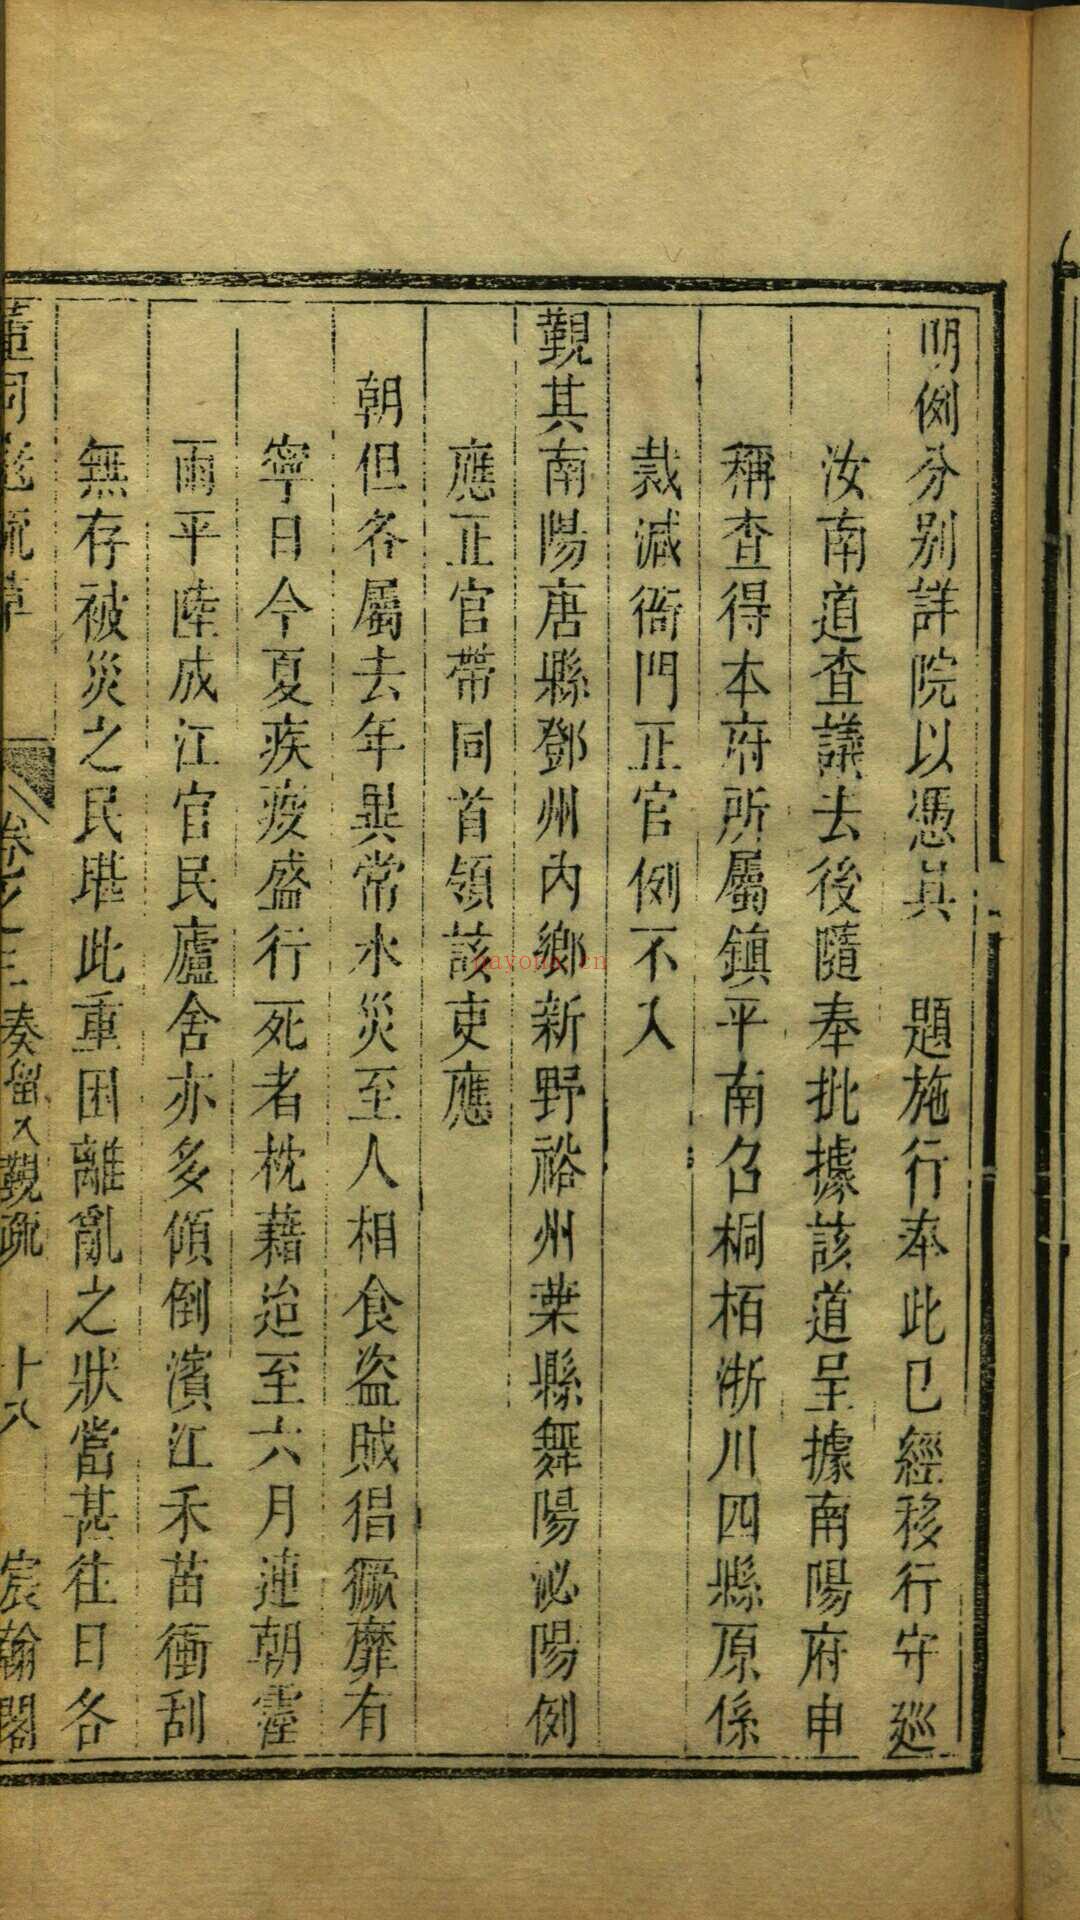 明例分别詳院以憑具　題施行奉此已經移行守廵
汝南道查議去後隨奉批據該道呈據南陽府申
稱查得本府所屬鎮平南召桐栢淅川四縣原係
裁減衙門正官例不入
覲其南陽唐縣鄧州內鄉新野裕州葉縣舞陽泌陽例
應正官帶同首領該吏應
朝但各屬去年異常水災至人相食盗賊猖獗靡有
寧日今夏疾疫盛行死者枕藉迨至六月連朝霪
雨平陸成江官民廬舍亦多傾倒濱江禾苗衝刮
無存被災之民堪此重困離亂之狀當甚往日各
奏留入覲疏　十八　宸翰閣